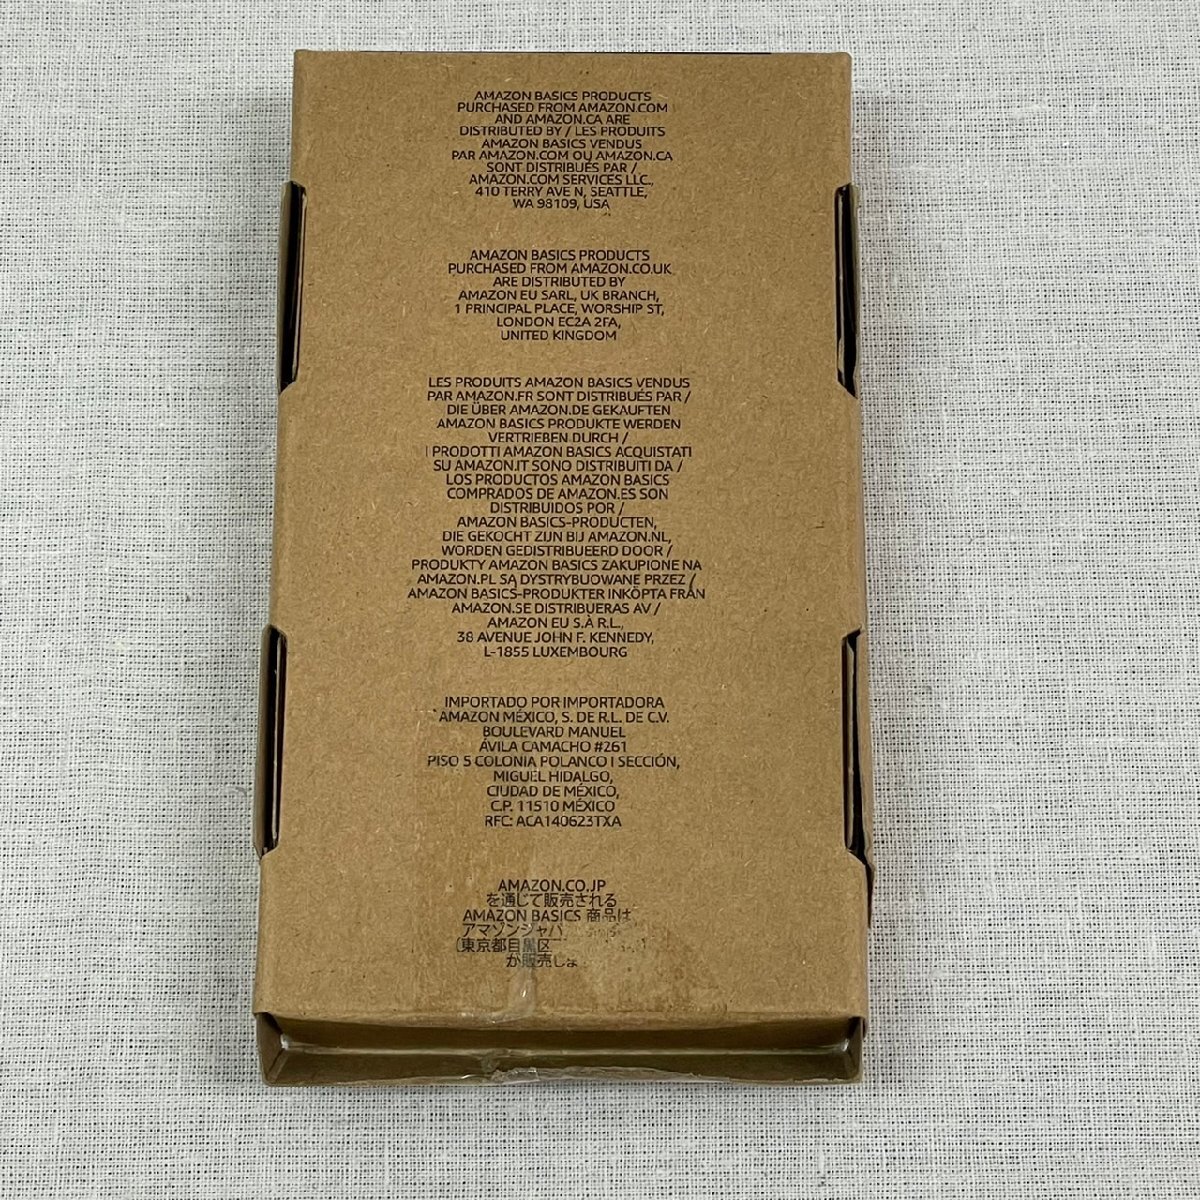 AMAZON BASICS PRODUCTS
PURCHASED FROM AMAZON.COM
AND AMAZON.CA ARE
DISTRIBUTED BY / LES PRODUITS
AMAZON BASICS VENDUS
PAR AMAZON.COM OU AMAZON.CA
SONT DISTRIBUÉS PAR /
AMAZON.COM SERVICES LLC.,
410 TERRY AVE N, SEATTLE,
WA 98109, USA
AMAZON BASICS PRODUCTS
PURCHASED FROM AMAZON.CO.UK
ARE DISTRIBUTED BY
AMAZON EU SARL, UK BRANCH,
1 PRINCIPAL PLACE, WORSHIP ST,
LONDON EC2A 2FA,
UNITED KINGDOM
LES PRODUITS AMAZON BASICS VENDUS
PAR AMAZON.FR SONT DISTRIBUÉS PAR /
DIE ÜBER AMAZON.DE GEKAUFTEN
AMAZON BASICS PRODUKTE WERDEN
VERTRIEBEN DURCH /
I PRODOTTI AMAZON BASICS ACQUISTATI
SU AMAZON.IT SONO DISTRIBUITI DA /
LOS PRODUCTOS AMAZON BASICS
COMPRADOS DE AMAZON.ES SON
DISTRIBUIDOS POR /
AMAZON BASICS-PRODUCTEN,
DIE GEKOCHT ZIJN BIJ AMAZON.NL,
WORDEN GEDISTRIBUEERD DOOR /
PRODUKTY AMAZON BASICS ZAKUPIONE NA
AMAZON.PL SĄ DYSTRYBUOWANE PRZEZ /
AMAZON BASICS-PRODUKTER INKÖPTA FRÅN
AMAZON.SE DISTRIBUERAS AV /
AMAZON EU S.À R.L.,
38 AVENUE JOHN F. KENNEDY,
L-1855 LUXEMBOURG
IMPORTADO POR IMPORTADORA
AMAZON MÉXICO, S. DE R.L. DE C.V.
BOULEVARD MANUEL
ÁVILA CAMACHO #261
PISO 5 COLONIA POLANCO I SECCIÓN,
MIGUEL HIDALGO,
CIUDAD DE MÉXICO,
C.P. 11510 MÉXICO
RFC: ACA140623TXA
AMAZON.CO.JP
を通じて販売される
AMAZON BASICS 商品は
アマゾンジャパ
(東京都目黒区
が販売しま